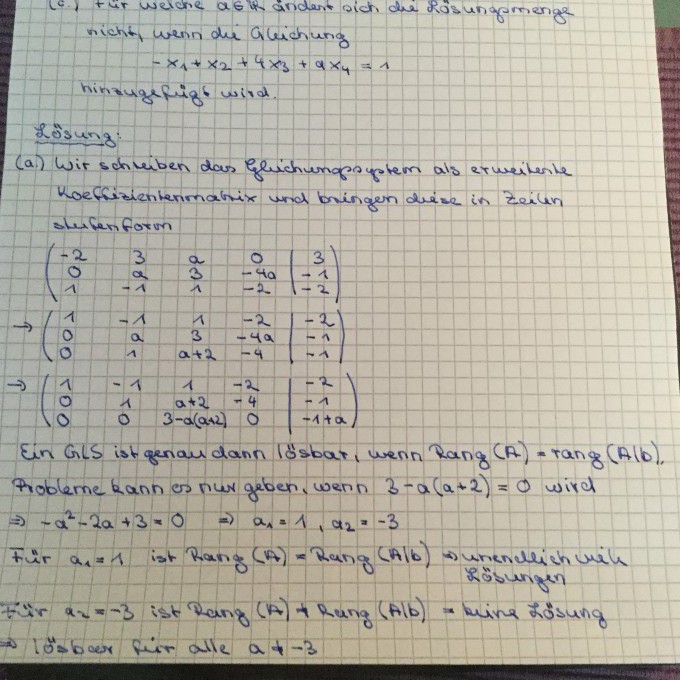 (c.) Für welche a∈ℝ ändert sich die Lösungsmenge
nicht, wenn die Gleichung
-x₁ + x₂ + 4x₃ + ax₄ = 1
hinzugefügt wird.
Lösung:
(a.) Wir schreiben das Gleichungssystem als erweiterte
Koeffizientenmatrix und bringen diese in Zeilen
stufenform
( -2 3 a 0 | 3 )
( 0 a 3 -4a | -1 )
( 1 -1 1 -2 | -2 )
→ ( 1 -1 1 -2 | -2 )
( 0 a 3 -4a | -1 )
( 0 1 a+2 -4 | -1 )
→ ( 1 -1 1 -2 | -2 )
( 0 1 a+2 -4 | -1 )
( 0 0 3-a(a+2) 0 | -1+a )
Ein GLS ist genau dann lösbar, wenn Rang(A) = rang(A|b).
Probleme kann es nur geben, wenn 3-a(a+2) = 0 wird
⇒ -a²-2a+3 = 0 ⇒ a₁ = 1, a₂ = -3
Für a₁ = 1 ist Rang(A) = Rang(A|b) ⇒ unendlich viele
Lösungen
Für a₂ = -3 ist Rang(A) ≠ Rang(A|b) = keine Lösung
⇒ lösbar für alle a ≠ -3